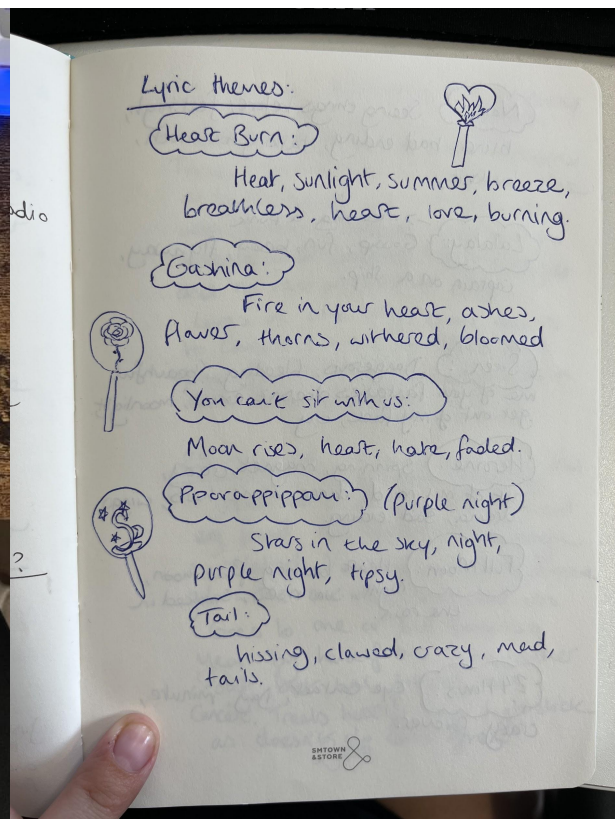 Lyric themes:
Heart Burn:
Heat, sunlight, summer, breeze,
breathless, heart, love, burning.
Gashina:
Fire in your heart, ashes,
flower, thorns, withered, bloomed
You can't sit with us:
Moon rises, heart, hate, faded.
Pporappippam: (purple night)
Stars in the sky, night,
purple night, tipsy.
Tail:
hissing, clawed, crazy, mad,
tails.
SMTOWN
&STORE
?